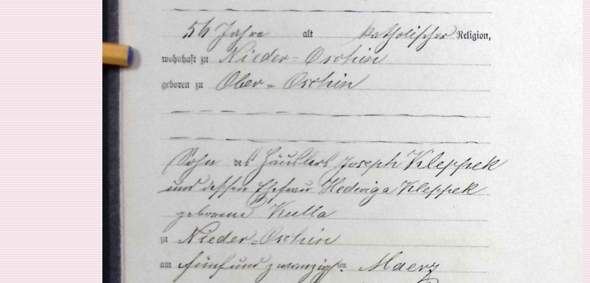 56 Jahre alt katholischer Religion,
wohnhaft zu Nieder-Oschin
geboren zu Ober-Oschin
Sohn des Häuslers Joseph Kleppek
und dessen Ehefrau Hedwiga Kleppek
geborene Kulla
zu Nieder-Oschin
am fünfundzwanzigsten Maerz